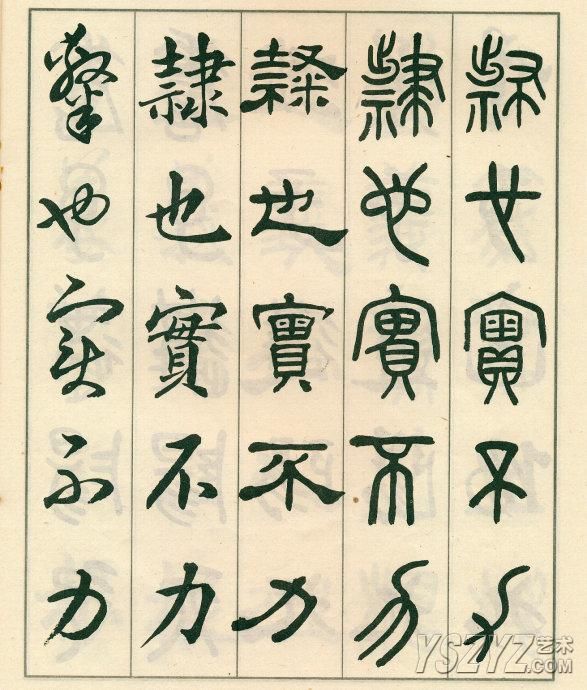 隸也實不力
隸也實不力
隸也實不力
隸也實不力
隸也實不力
YSZYZ艺术.COM